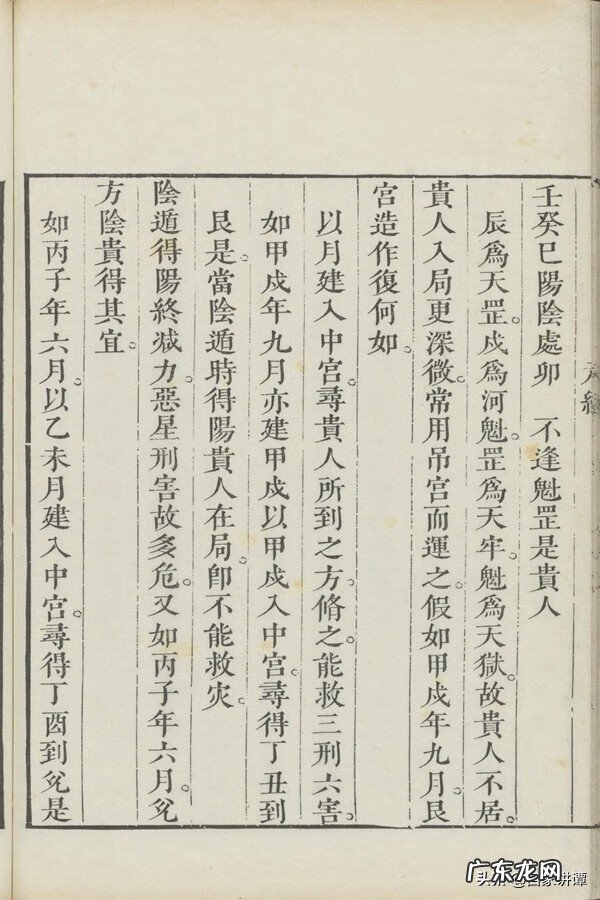 壬癸巳陽陰處卯　不逢魁罡是貴人
辰爲天罡。戌爲河魁。罡爲天牢。魁爲天獄。故貴人不居。
貴人入局更深微。常用吊宮而運之。假如甲戌年九月。艮
宮造作復何如。
以月建入中宮。尋貴人所到之方。脩之。能救三刑六害。
如甲戌年九月亦建甲戌。以甲戌入中宮。尋得丁丑到
艮是。當陰遁時。得陽貴人在局。卽不能救灾。
陰遁得陽終减力。惡星刑害故多危。又如丙子年六月。兊
方陰貴得其宜。
如丙子年六月。以乙未月建入中宮。尋得丁酉到兊是
广东龙网
头条